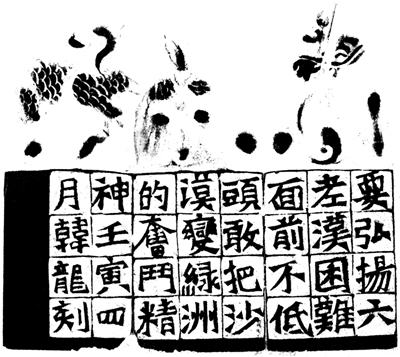 要弘揚六
老漢困難
面前不低
頭敢把沙
漠變緑洲
的奮鬥精
神壬寅四
月韓龍刻